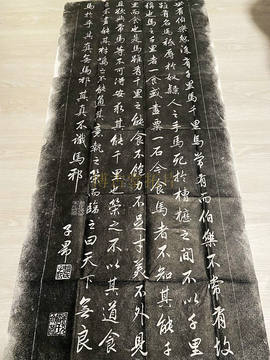 世有伯樂然後有千里馬千里馬常有而伯樂不常有故
雖有名馬祇辱於奴隸人之手死於槽櫪之間不以千里
稱也馬之千里者一食或盡粟一石今食馬者不知其能千
里而食也是馬雖有千里之能食不飽力不足才美不外見
且欲與常馬等不可得安求其能千里也策之不以其道食
之不能盡其材鳴之不能通其意執策而臨之曰天下無良
馬嗚乎其真無馬邪其真不識馬邪
子昂